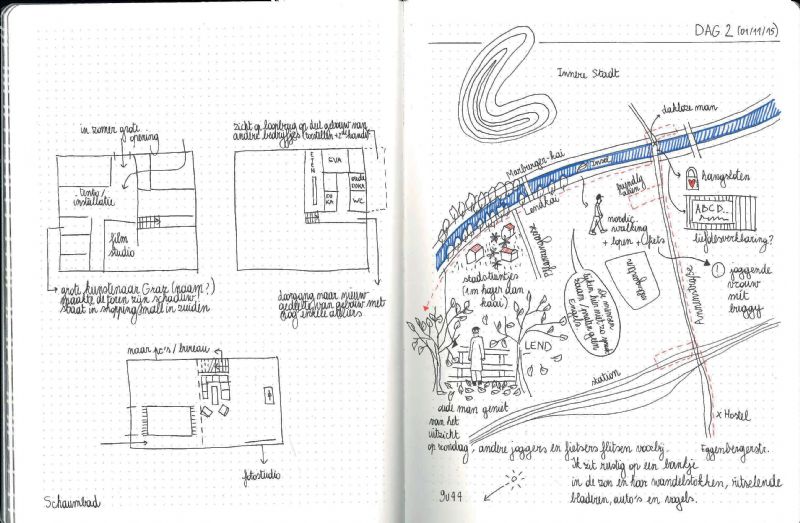 in zomer grote
opening
tento/
installatie
film
studio
grote kunstenaar Graz (naam?)
maakte de toren zijn schaduw
staat in shopping mall in zuiden
zicht op loopbrug op deel gebouw van
andere bedrijfjes (toestellen + 2de hands)
ETEN
GVR
DO
KA
oude
DOKA
WC
doorgang naar nieuw
gedeelte van gebouw met
nog enkele ateliers
naar pc's / bureau
fotostudio
Schaumbad
DAG 2 (01/11/15)
Innere Stadt
dakloze man
Marburger-kai
Insel
Lendkai
friendly
alien
hangsloten
ABCD..
liefdesverklaring?
nordic
walking
+ lopen + fiets
! joggende
vrouw
met
buggy
stadstuintjes
(1m hoger dan
kaai)
de mensen
lijken hier niet zo graag
Engels.
LEND
Annenstraße
station
x Hostel
Eggenbergerstr.
oude man geniet
van het
uitzicht
op zondag, andere joggers en fietsers flitsen voorbij.
Ik zit rustig op een bankje
in de zon en hoor wandelstokken, ritselende
bladeren, auto's en vogels.
9u44